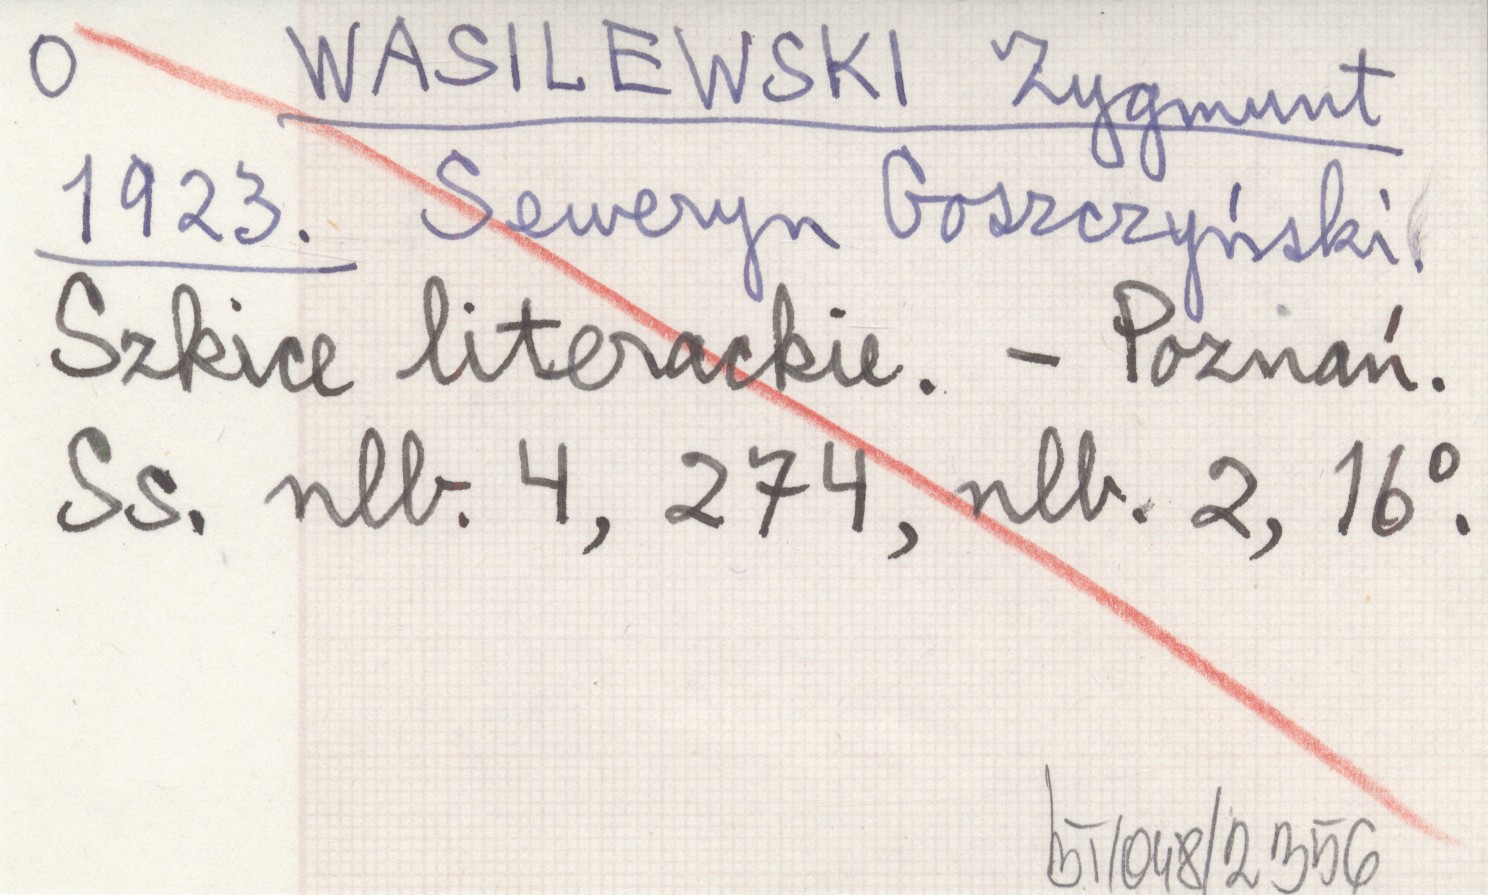 O WASILEWSKI Zygmunt
1923. Seweryn Goszczyński.
Szkice literackie. – Poznań.
Ss. nlb. 4, 274, nlb. 2, 16°.